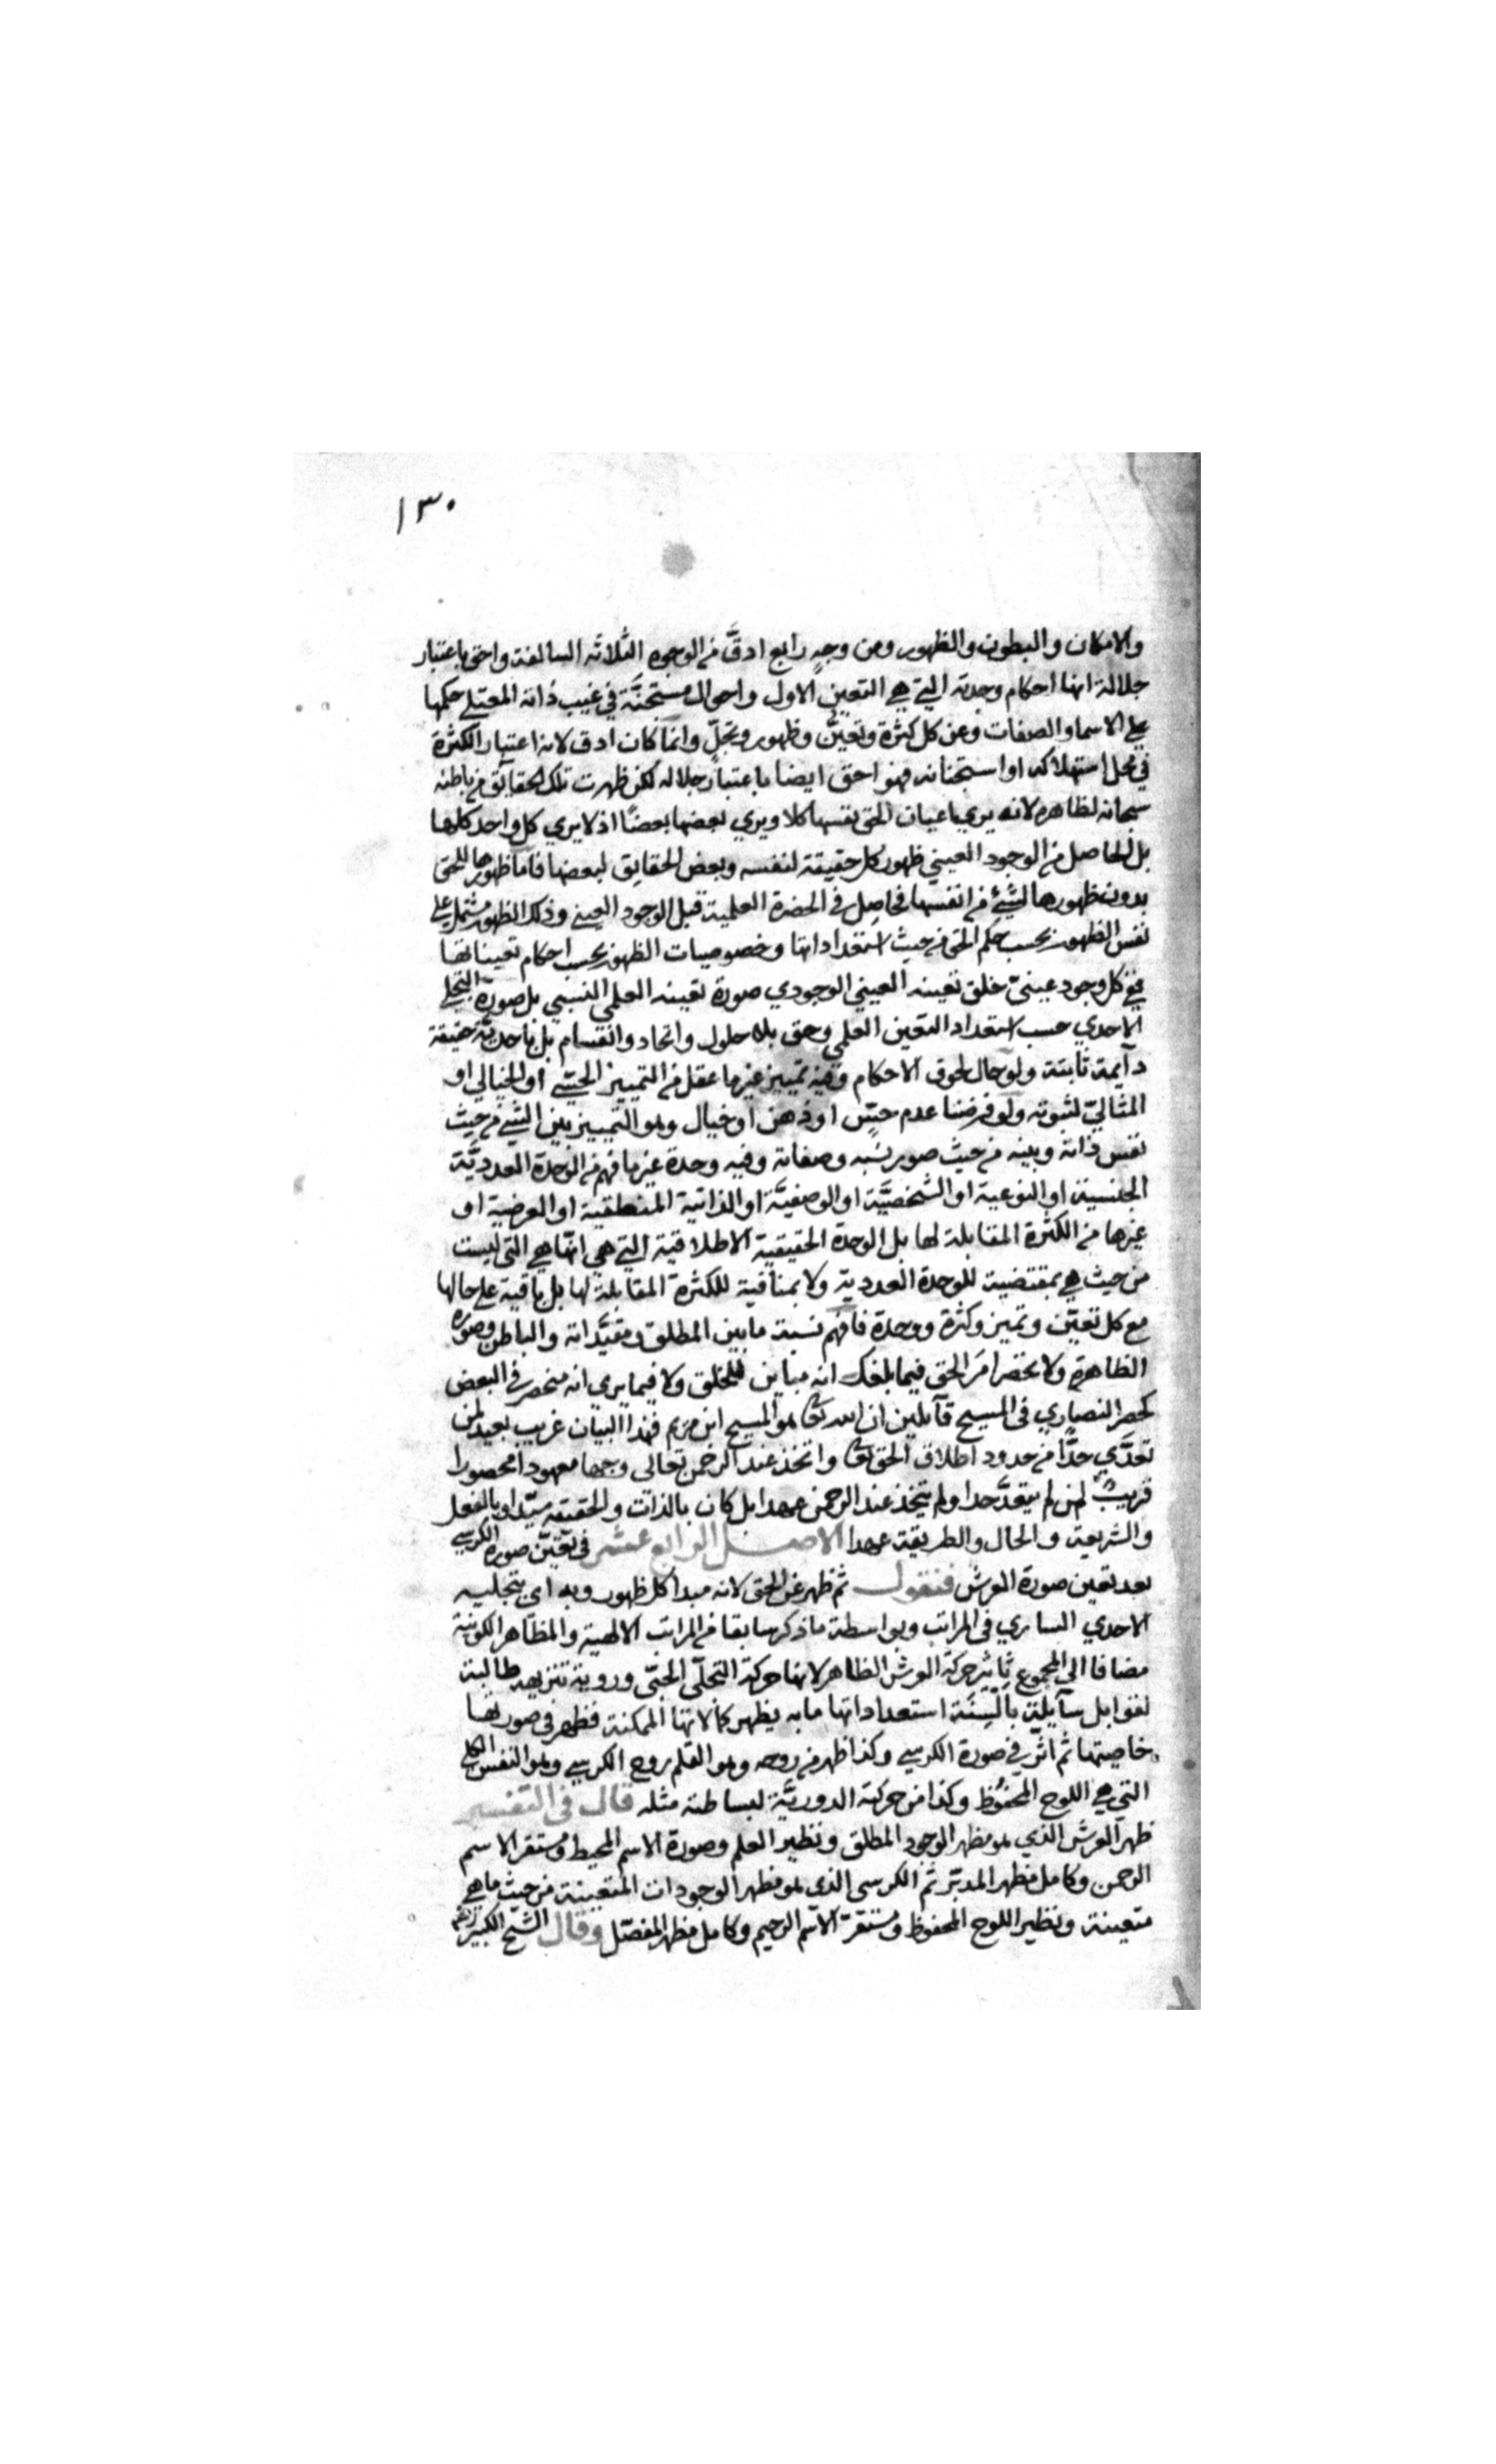 ١٣٠
والامكان والبطون والظهور ومن وجهٍ رابع ادقَّ من الوجوه الثلاثة السالفة واحق باعتبار
جلالة انها احكام وحدته التي هي التعين الاول واحوال مستجنَّة في غيب ذاته المعتلي حكمها
على الاسماء والصفات وعن كل كثرة وتعيّن وظهور وتجلّ وانما كان ادق لانه اعتبار الكثرة
في محل استهلاكه او استجنانه فهو احق ايضا باعتبار جلاله لكن ظهرت تلك الحقايق من باطنه
سبحانه لظاهره لانه يري باعيان الحق نفسها كلا ويري بعضها بعضًا اذ لا يري كل واحد كلها
بل الحاصل من الوجود العيني ظهور كل حقيقة لنفسه وبعض الحقايق لبعضها فاما ظهورها للحق
بدون ظهورها لشئ من انفسها فحاصل في الحضرة العلمية قبل الوجود العيني وذلك الظهور مشتمل على
نفس الظهور بحسب حكم الحق من حيث استعداداتها وخصوصيات الظهور بحسب احكام تعيناتها
ففي كل وجود عينيّ خلق تعينه العيني الوجودي صورة تعينه العلمي النسبي بل صورة التجلي
الاحدي حسب استعداد التعين العلمي وحق بلا حلول واتحاد وانقسام بل باحديّة حقيقة
دآيمة ثابتة ولو حال لحوق الاحكام وفيه تمييز غير ما عقل من التمييز الحسّي او الخيالي او
المثاليّ لثبوته ولو فرضنا عدم حسّ او ذهن او خيال وهو التمييز بين الشئ من حيث
نفس ذاته وبينه من حيث صور نسبه وصفاته وفيه وحدة غير ما فهم من الوحدة العدديَّة
الجنسية او النوعية او الشخصيَّة او الوصفيَّة او الذاتية المنطقية او العرضية او
غيرها من الكثرة المقابلة لها بل الوحدة الحقيقية الاطلاقية التي هي انها هي التي ليست
من حيث هي بمقتضية للوحدة العددية ولا بمنافية للكثرة المقابلة لها بل باقية على حالها
مع كل تعيّن وتميز وكثرة ووحدة فافهم نسبة ما بين المطلق ومقيَّداته والباطن وصوره
الظاهرة ولا تحصر امر الحق فيما بلغك انه مباين للخلق ولا فيما يري انه منحصر في البعض
كحصر النصاري في المسيح قآيلين ان الله تعا هو المسيح ابن مريم فهذا البيان غريب بعيد لمن
تعدَّي حدًّا من حدود اطلاق الحق تعا واتخذ عند الرحمن تعالى وجها معهودا محصورا
قريب لمن لم يتعدَّ حدا ولم يتخذ عند الرحمن عهدا بل كان بالذات والحقيقة سيّدا وبالفعل
والشريعة والحال والطريقة عهدا الاصل الرابع عشر في تعيّن صورة الكرسي
بعد تعين صورة العرش فنقول ثم ظهر عن الحق لانه مبدا كل ظهور وبه اي بتجليه
الاحدي الساري في المراتب وبواسطة ما ذكر سابقا من المراتب الالهية والمظاهر الكونية
مضافا الى المجموع تاثير حركة العرش الظاهر لانها حركة التجلّي الحبّي وروية تنزيهه طالبة
لقوابل سآيلة بالسِنَة استعداداتها ما به يظهر كمالاتها الممكنة فظهر في صورتها
خاصيتها ثم اثر في صورة الكرسي وكذا ظهر من روحه وهو القلم روح الكرسي وهو النفس الكلي
التي هي اللوح المحفوظ وكذا من حركته الدوريَّة لبساطته مثله قال في التفسير
ظهر العرش الذي هو مظهر الوجود المطلق ونظير العلم وصورة الاسم المحيط ومستقر الاسم
الرحمن وكامل مظهر المدبّر ثم الكرسي الذي هو مظهر الوجودات المتعينة من حيث ما هي
متعينة ونظير اللوح المحفوظ ومستقرّ الاسم الرحيم وكامل مظهر المفصّل وقال الشيخ الكبير